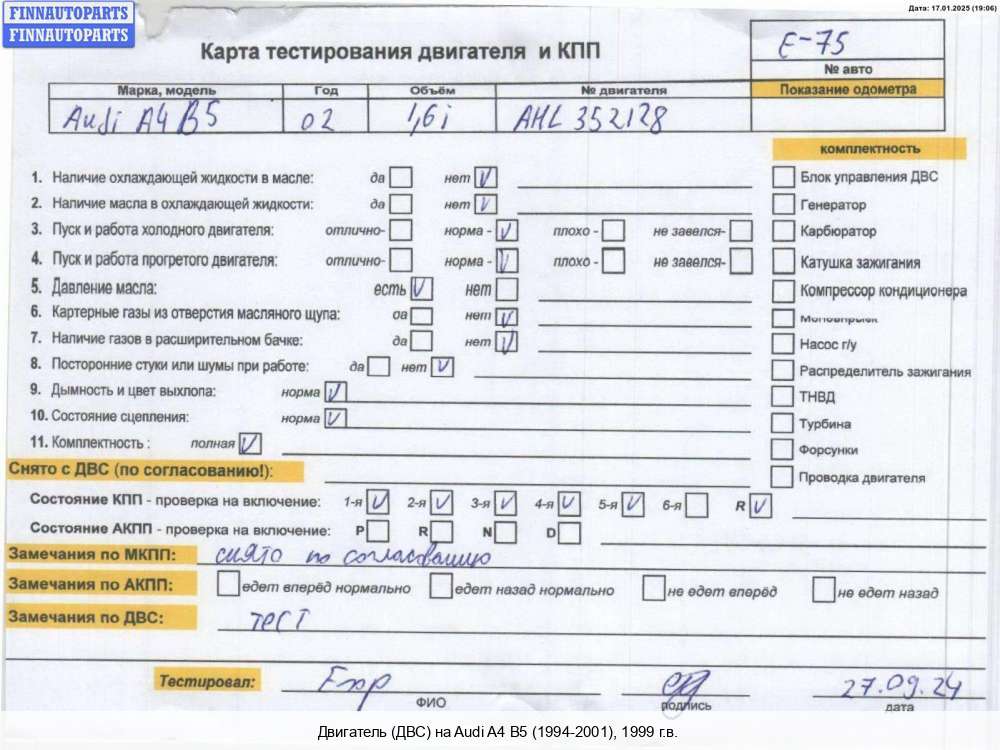 FINNAUTOPARTS
FINNAUTOPARTS
Дата: 17.01.2025 (19:06)
Карта тестирования двигателя и КПП
E-75
№ авто
Марка, модель Год Объём № двигателя Показание одометра
Audi A4 B5 02 1,6i AHL 352128
комплектность
1. Наличие охлаждающей жидкости в масле: да нет V
Блок управления ДВС
2. Наличие масла в охлаждающей жидкости: да нет V
Генератор
3. Пуск и работа холодного двигателя: отлично- норма - V плохо - не завелся-
Карбюратор
4. Пуск и работа прогретого двигателя: отлично- норма - V плохо - не завелся-
Катушка зажигания
5. Давление масла: есть V нет
Компрессор кондиционера
6. Картерные газы из отверстия масляного щупа: оа нет V
7. Наличие газов в расширительном бачке: да нет V
Насос г/у
8. Посторонние стуки или шумы при работе: да нет V
Распределитель зажигания
9. Дымность и цвет выхлопа: норма V
ТНВД
10. Состояние сцепления: норма V
Турбина
11. Комплектность : полная V
Форсунки
Снято с ДВС (по согласованию!):
Проводка двигателя
Состояние КПП - проверка на включение: 1-я V 2-я V 3-я V 4-я V 5-я V 6-я R V
Состояние АКПП - проверка на включение: P R N D
Замечания по МКПП: снято по согласованию
Замечания по АКПП: едет вперёд нормально едет назад нормально не едет вперёд не едет назад
Замечания по ДВС: тест
Тестировал: Егор 27.09.24
ФИО подпись дата
Двигатель (ДВС) на Audi A4 B5 (1994-2001), 1999 г.в.